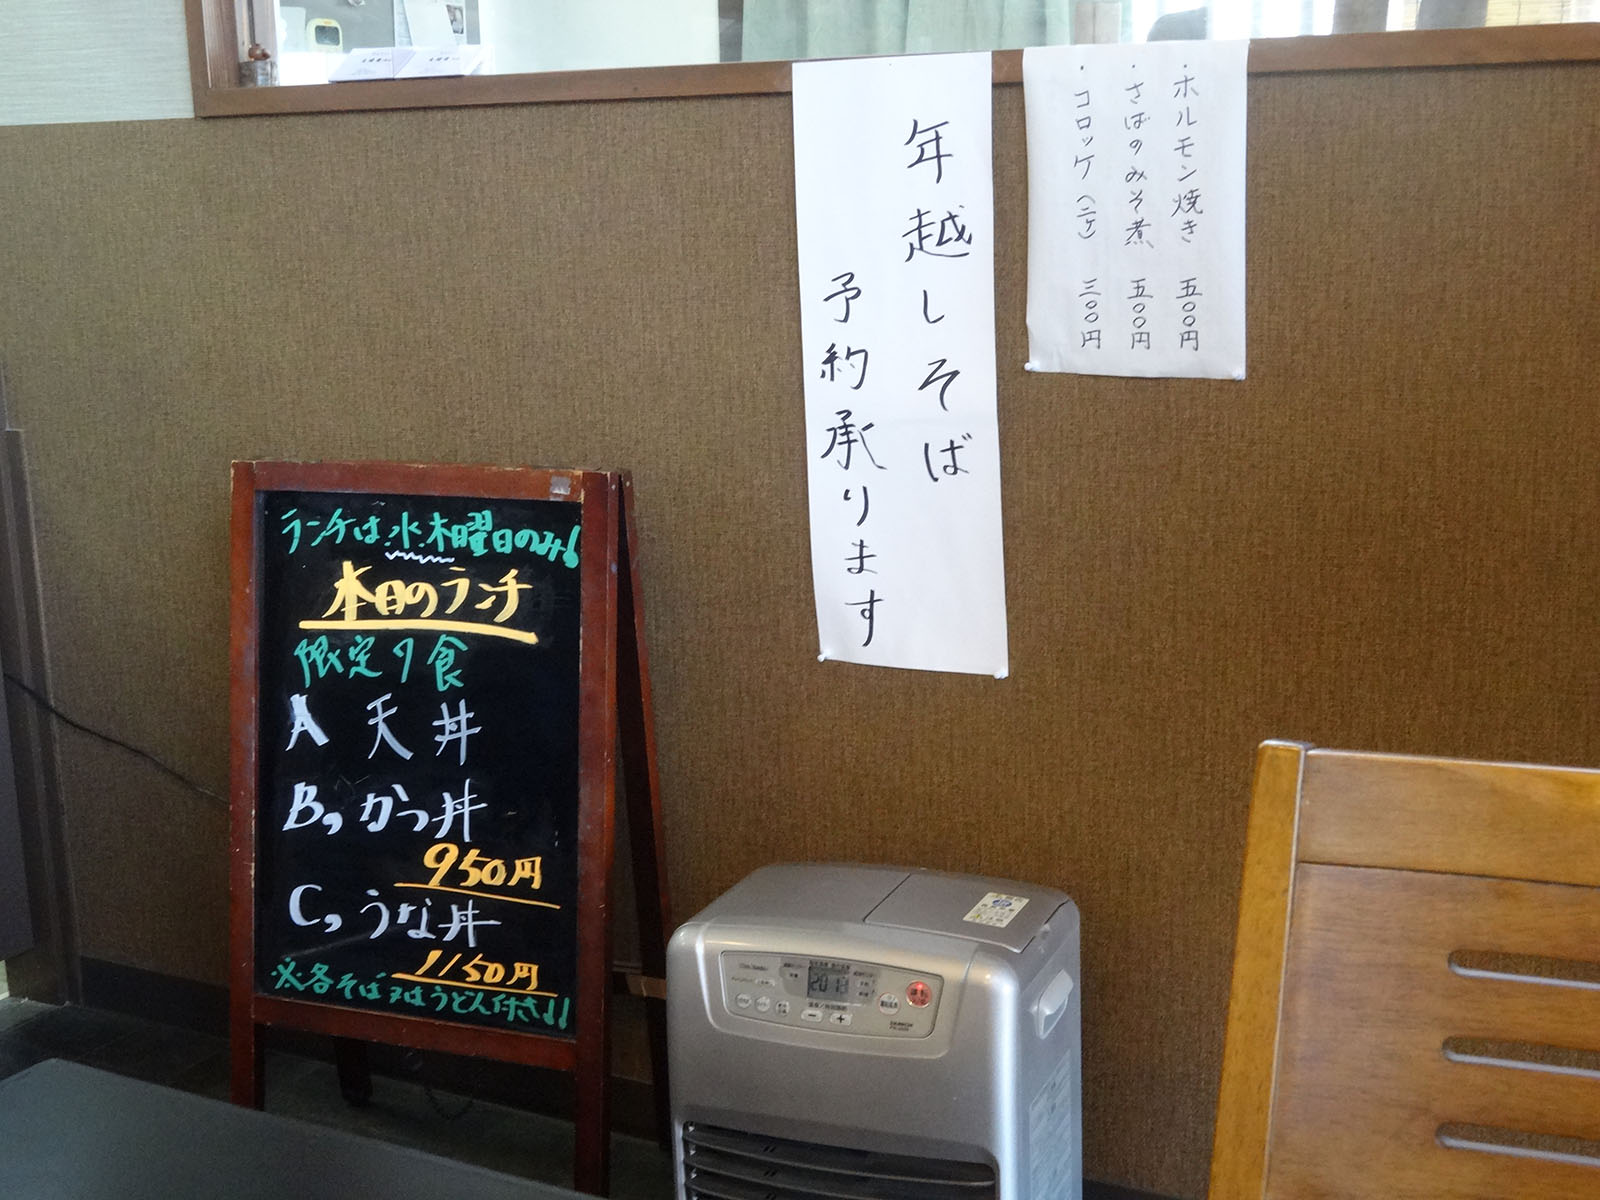 年越しそば
予約承ります
・ホルモン焼き 五〇〇円
・さばのみそ煮 五〇〇円
・コロッケ(二ケ) 三〇〇円
ランチは水.木曜日のみ!
本日のランチ
限定7食
A 天丼
B, かつ丼
950円
C, うな丼
1150円
※各そば又はうどん付き!!
2013